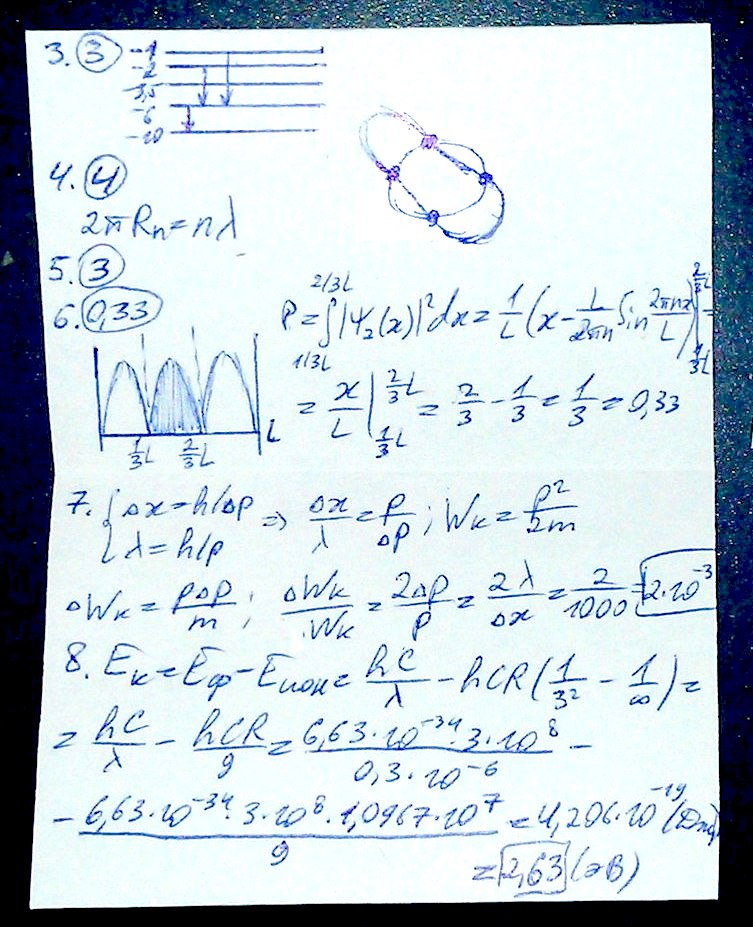 3. 3
-1
-2
-3,5
-6
-10
4. 4
2πRₙ = nλ
5. 3
6. 0,33
P = ∫|Ψ₂(x)|²dx = 1/L (x - L/2πn Sin 2πnx/L) | =
2/3L
1/3L
2/3L
1/3L
= x/L | 2/3L 1/3L = 2/3 - 1/3 = 1/3 = 0,33
1/3L 2/3L L
7. { Δx = h/Δp
λ = h/p
=> Δx/λ = p/Δp ; Wк = p²/2m
ΔWк = pΔp/m ; ΔWк/Wк = 2Δp/p = 2λ/Δx = 2/1000 = 2·10⁻³
8. Eк = Eф - Eион = hC/λ - hCR(1/3² - 1/∞) =
= hC/λ - hCR/9 = 6,63·10⁻³⁴·3·10⁸/0,3·10⁻⁶ -
- 6,63·10⁻³⁴·3·10⁸·1,0967·10⁷/9 = 4,206·10⁻¹⁹ (Дж)
= 2,63 (эВ)